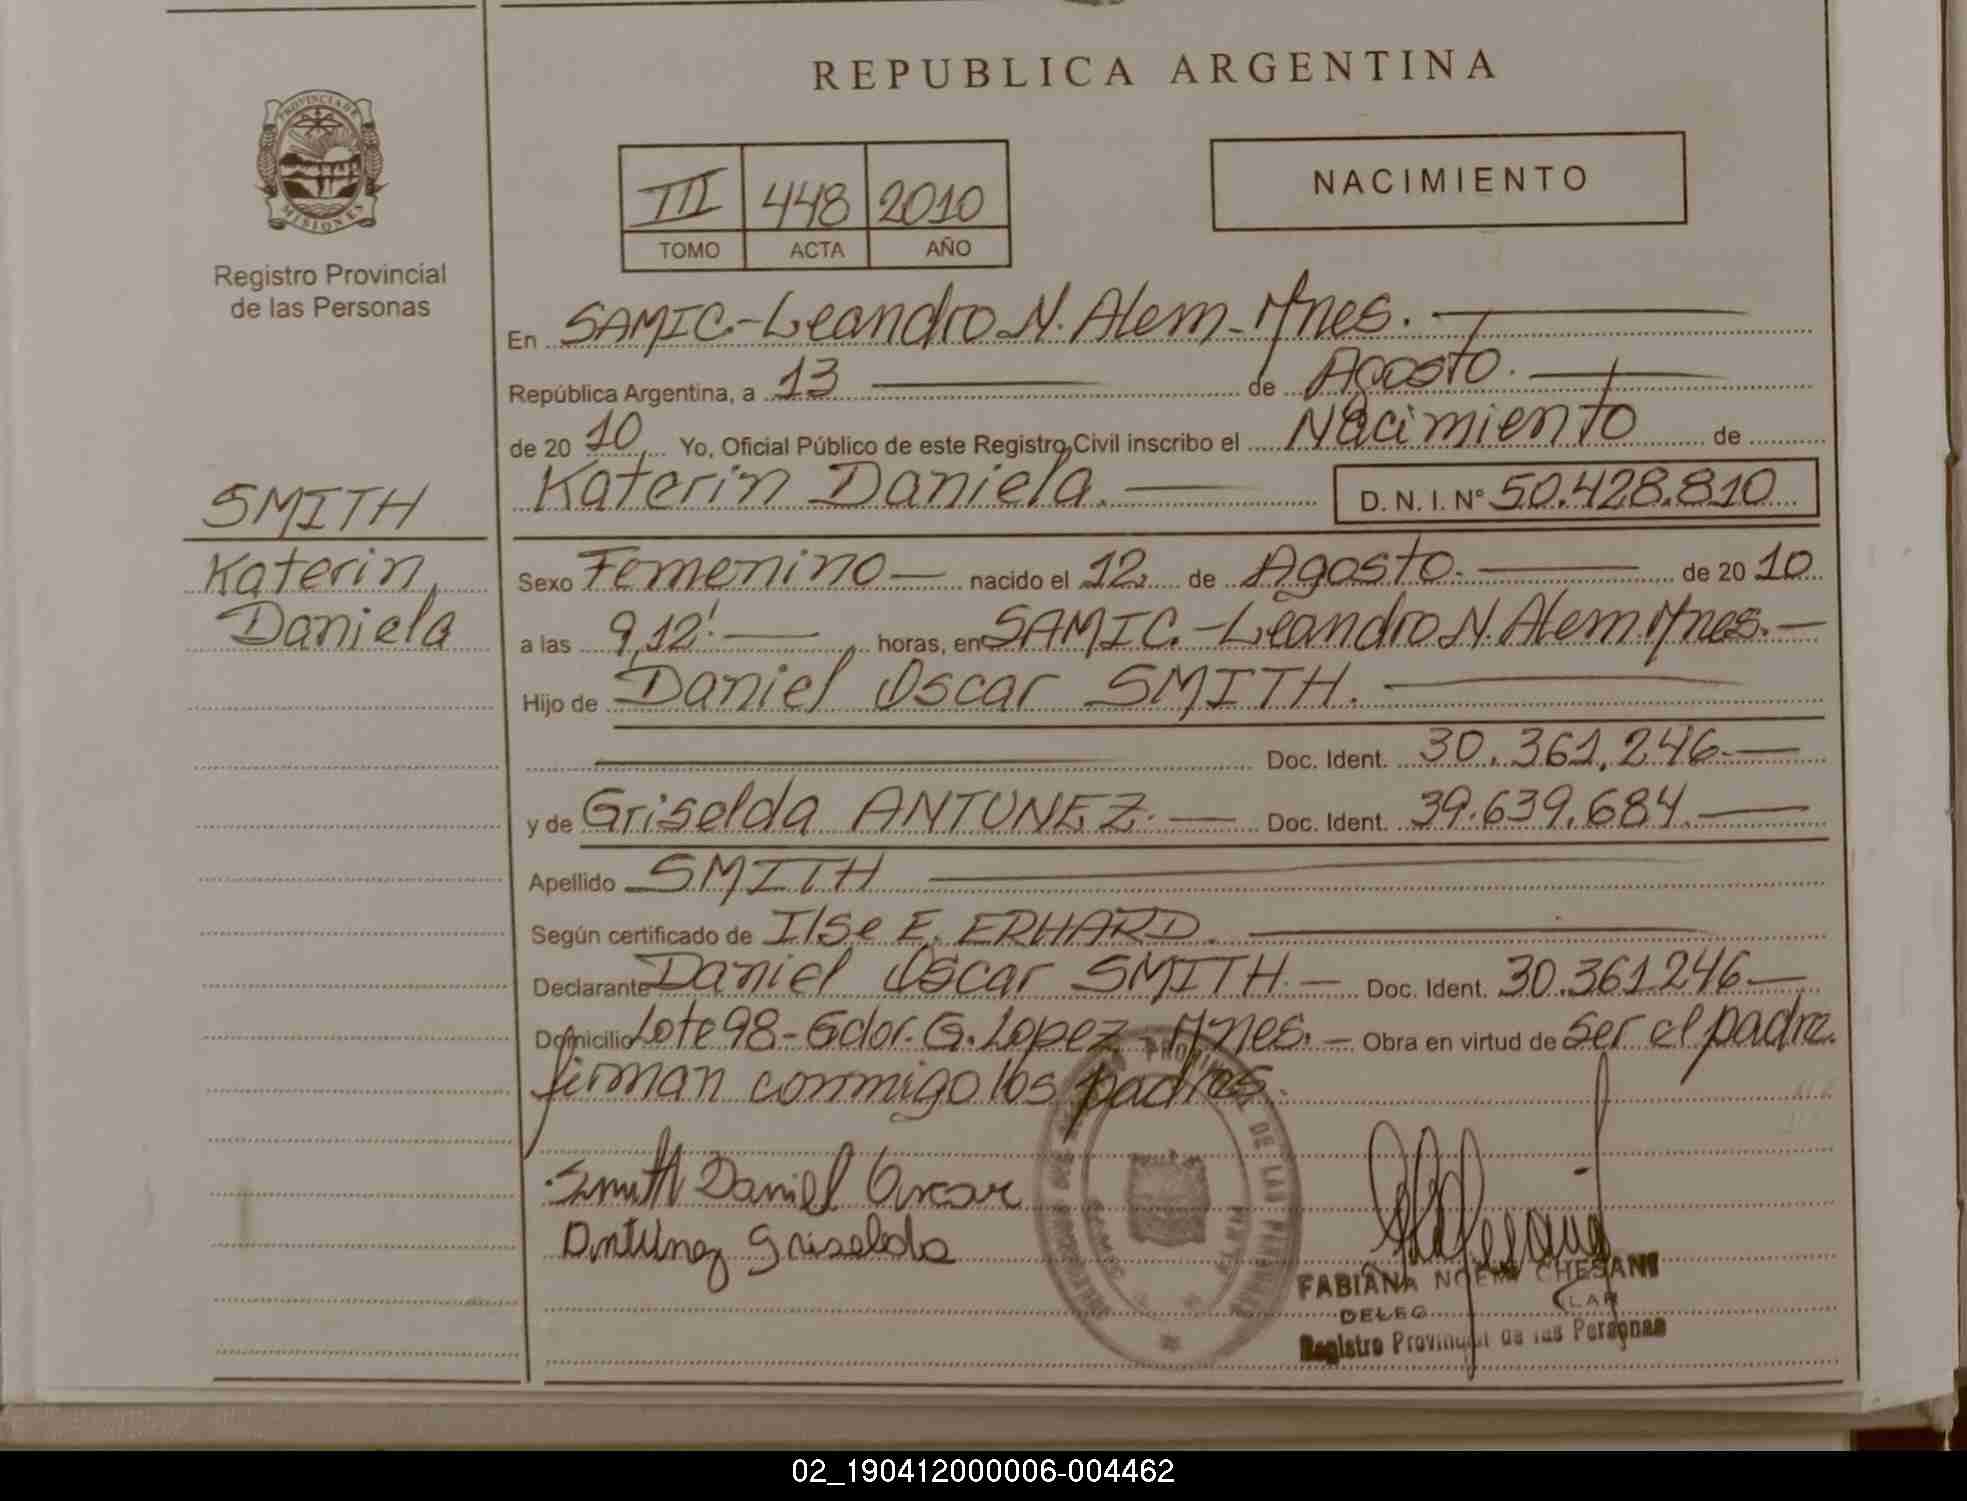 REPUBLICA ARGENTINA
PROVINCIA DE
MISIONES
Registro Provincial
de las Personas
III 448 2010
TOMO ACTA AÑO
NACIMIENTO
En SAMIC-Leandro N. Alem-Mnes.
República Argentina, a 13 de Agosto.
de 20 10 Yo, Oficial Público de este Registro Civil inscribo el Nacimiento de
Katerin Daniela. D. N. I. N° 50.428.810
SMITH
Katerin
Daniela
Sexo Femenino nacido el 12 de Agosto. de 20 10
a las 9,12' horas, en SAMIC.-Leandro N. Alem Mnes.-
Hijo de Daniel Oscar SMITH.
Doc. Ident. 30.361.246
y de Griselda ANTUNEZ. Doc. Ident. 39.639.684
Apellido SMITH
Según certificado de Ilse E. ERHARD.
Declarante Daniel Oscar SMITH.- Doc. Ident. 30.361246
Domicilio Lote 98-Gdor. G. Lopez - Mnes.- Obra en virtud de ser el padre.
firman conmigo los padres.
Smith Daniel Oscar
Antunez Griselda
DE LAS PERSONAS
FABIANA NOEMI CHESANI
DELEG
Registro Provincial de las Personas
02_190412000006-004462